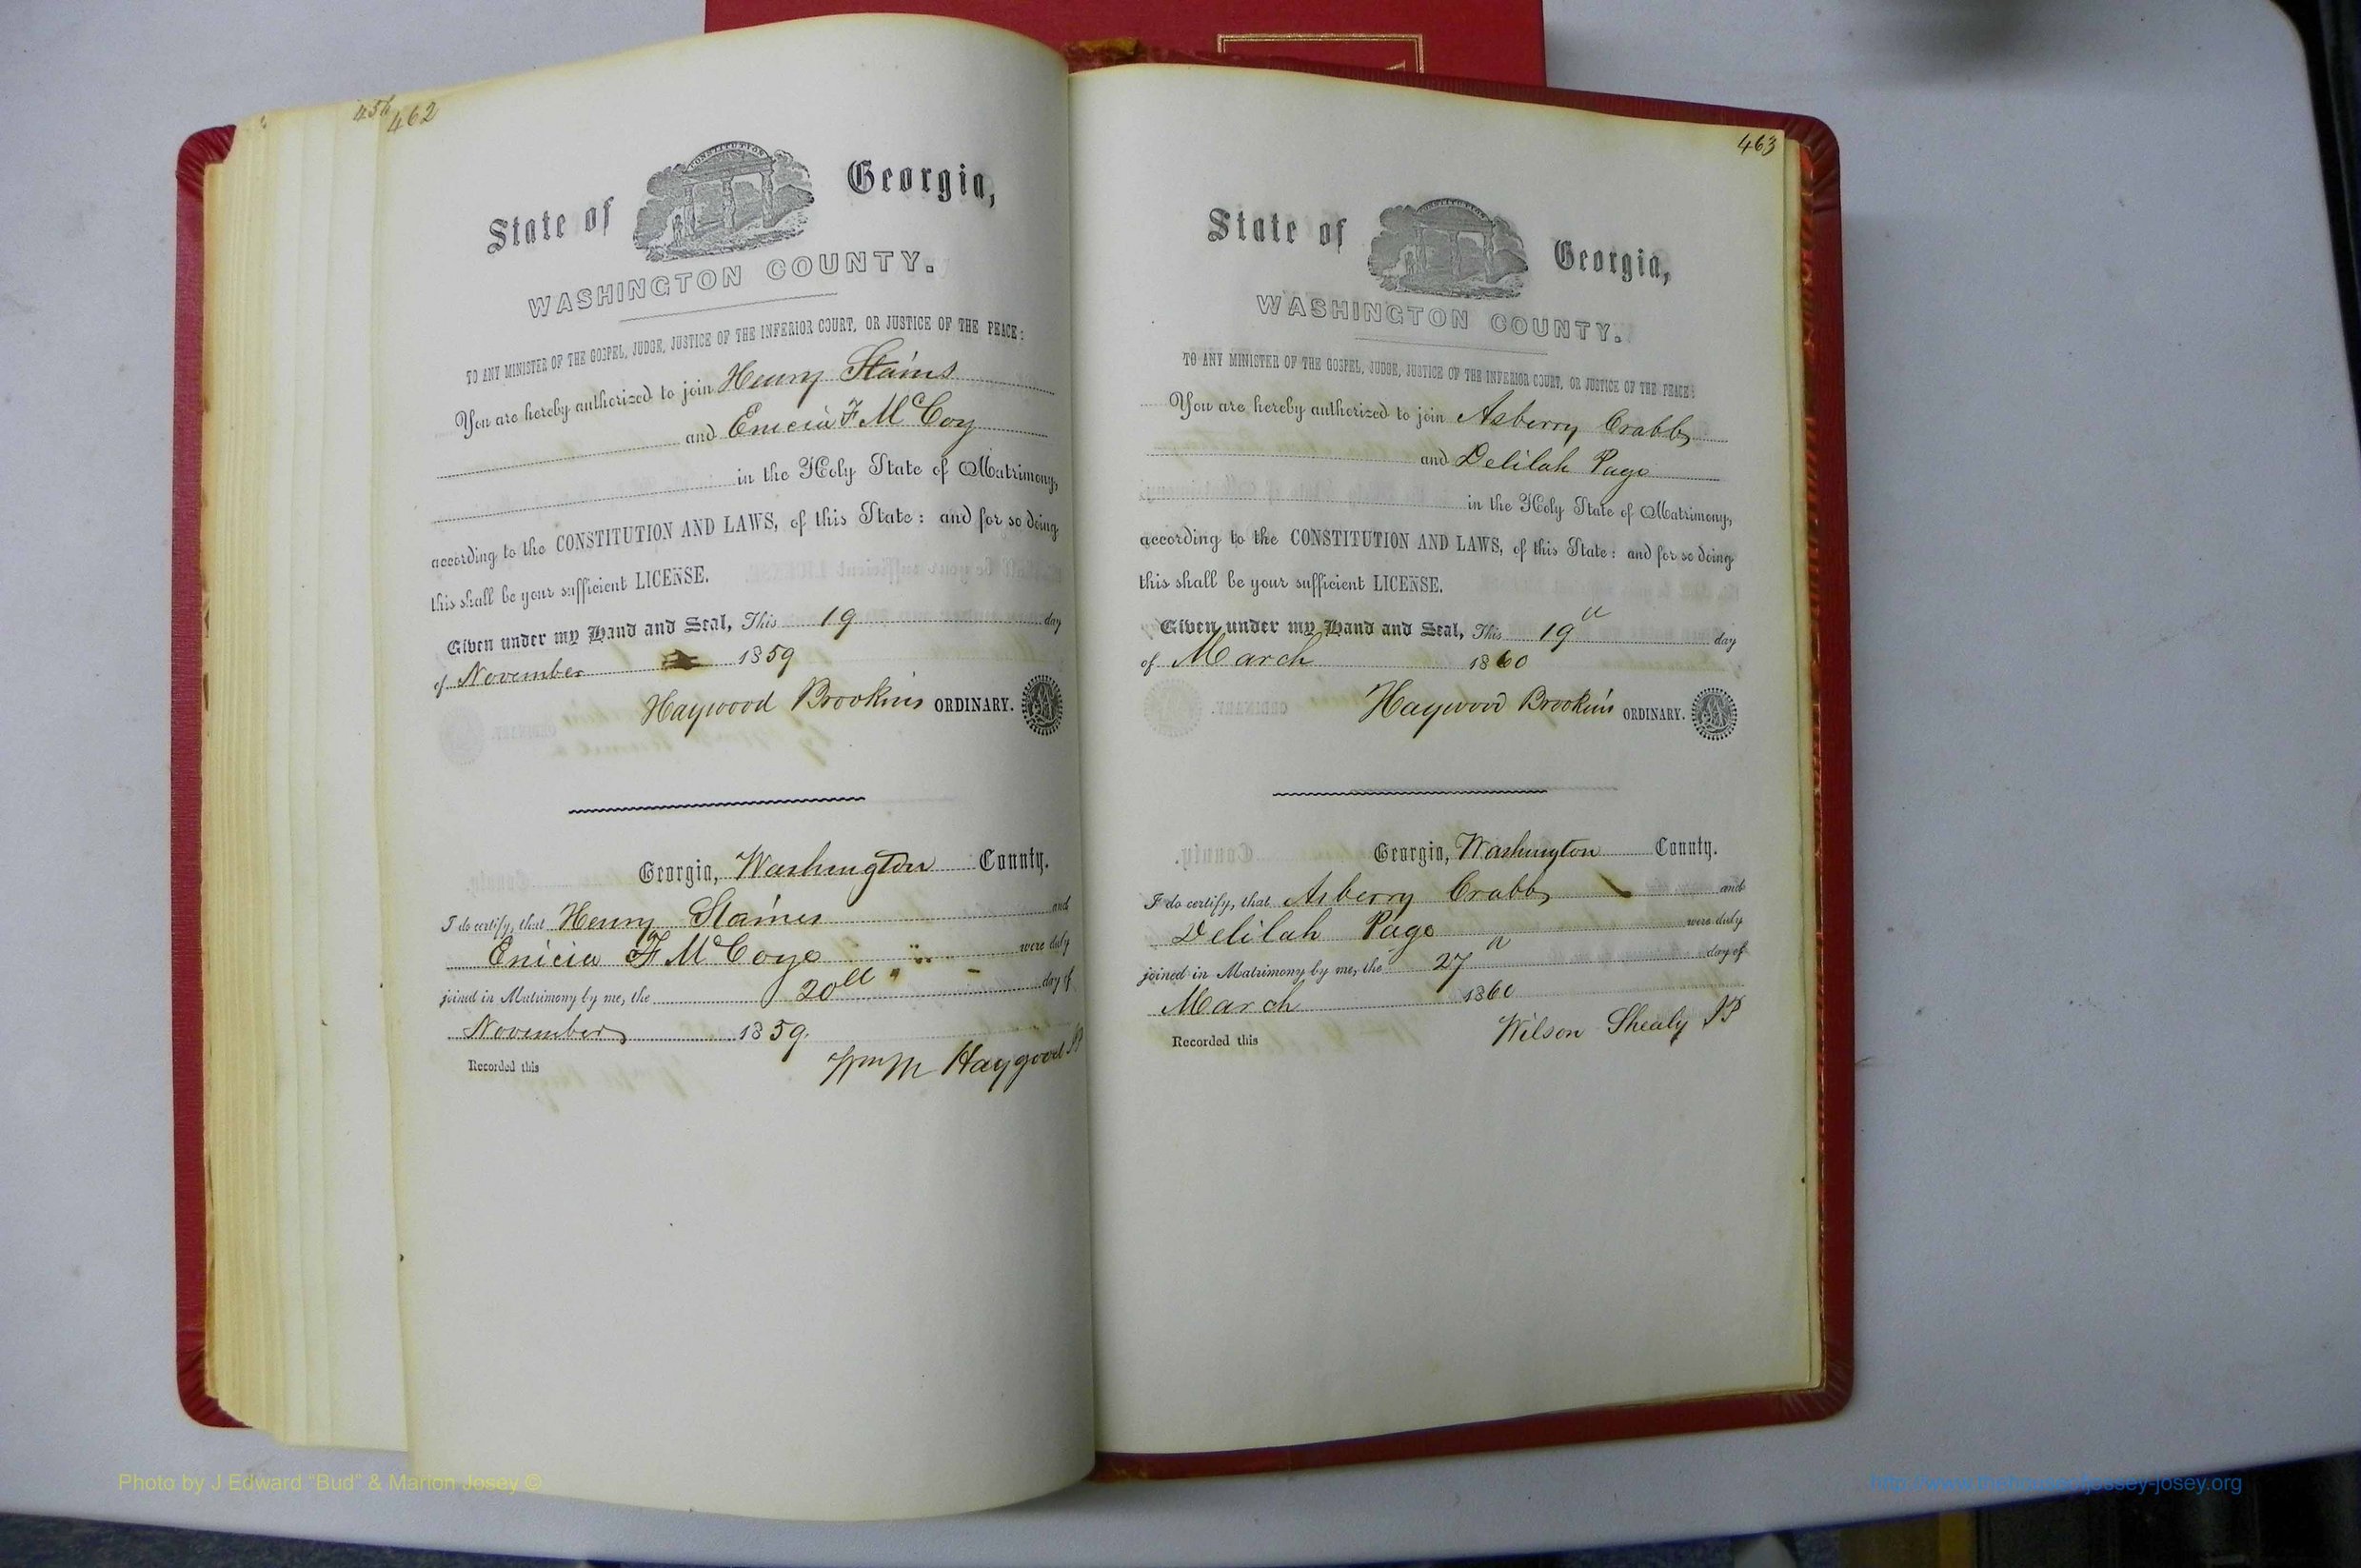 45
462
State of Georgia,
CONSTITUTION
WASHINGTON COUNTY.
TO ANY MINISTER OF THE GOSPEL, JUDGE, JUSTICE OF THE INFERIOR COURT, OR JUSTICE OF THE PEACE:
You are hereby authorized to join Henry Stains
and Enicia F McCoy
in the Holy State of Matrimony,
according to the CONSTITUTION AND LAWS, of this State: and for so doing
this shall be your sufficient LICENSE.
Given under my Hand and Seal, This 19 day
of November 1859
Haywood Brookins ORDINARY.
Georgia, Washington County.
I do certify, that Henry Staines and
Enicia F McCoye were duly
joined in Matrimony by me, the 20th day of
November 1859.
Wm M Haygood JP
Recorded this
463
State of Georgia,
CONSTITUTION
WASHINGTON COUNTY.
TO ANY MINISTER OF THE GOSPEL, JUDGE, JUSTICE OF THE INFERIOR COURT, OR JUSTICE OF THE PEACE:
You are hereby authorized to join Asberry Crabb
and Delilah Page
in the Holy State of Matrimony,
according to the CONSTITUTION AND LAWS, of this State: and for so doing
this shall be your sufficient LICENSE.
Given under my Hand and Seal, This 19th day
of March 1860
Haywood Brookins ORDINARY.
Georgia, Washington County.
I do certify, that Asberry Crabb and
Delilah Page were duly
joined in Matrimony by me, the 27th day of
March 1860
Wilson Shealy JP
Recorded this
Photo by J Edward “Bud” & Marion Josey ©
http://www.thehouseofjossey-josey.org